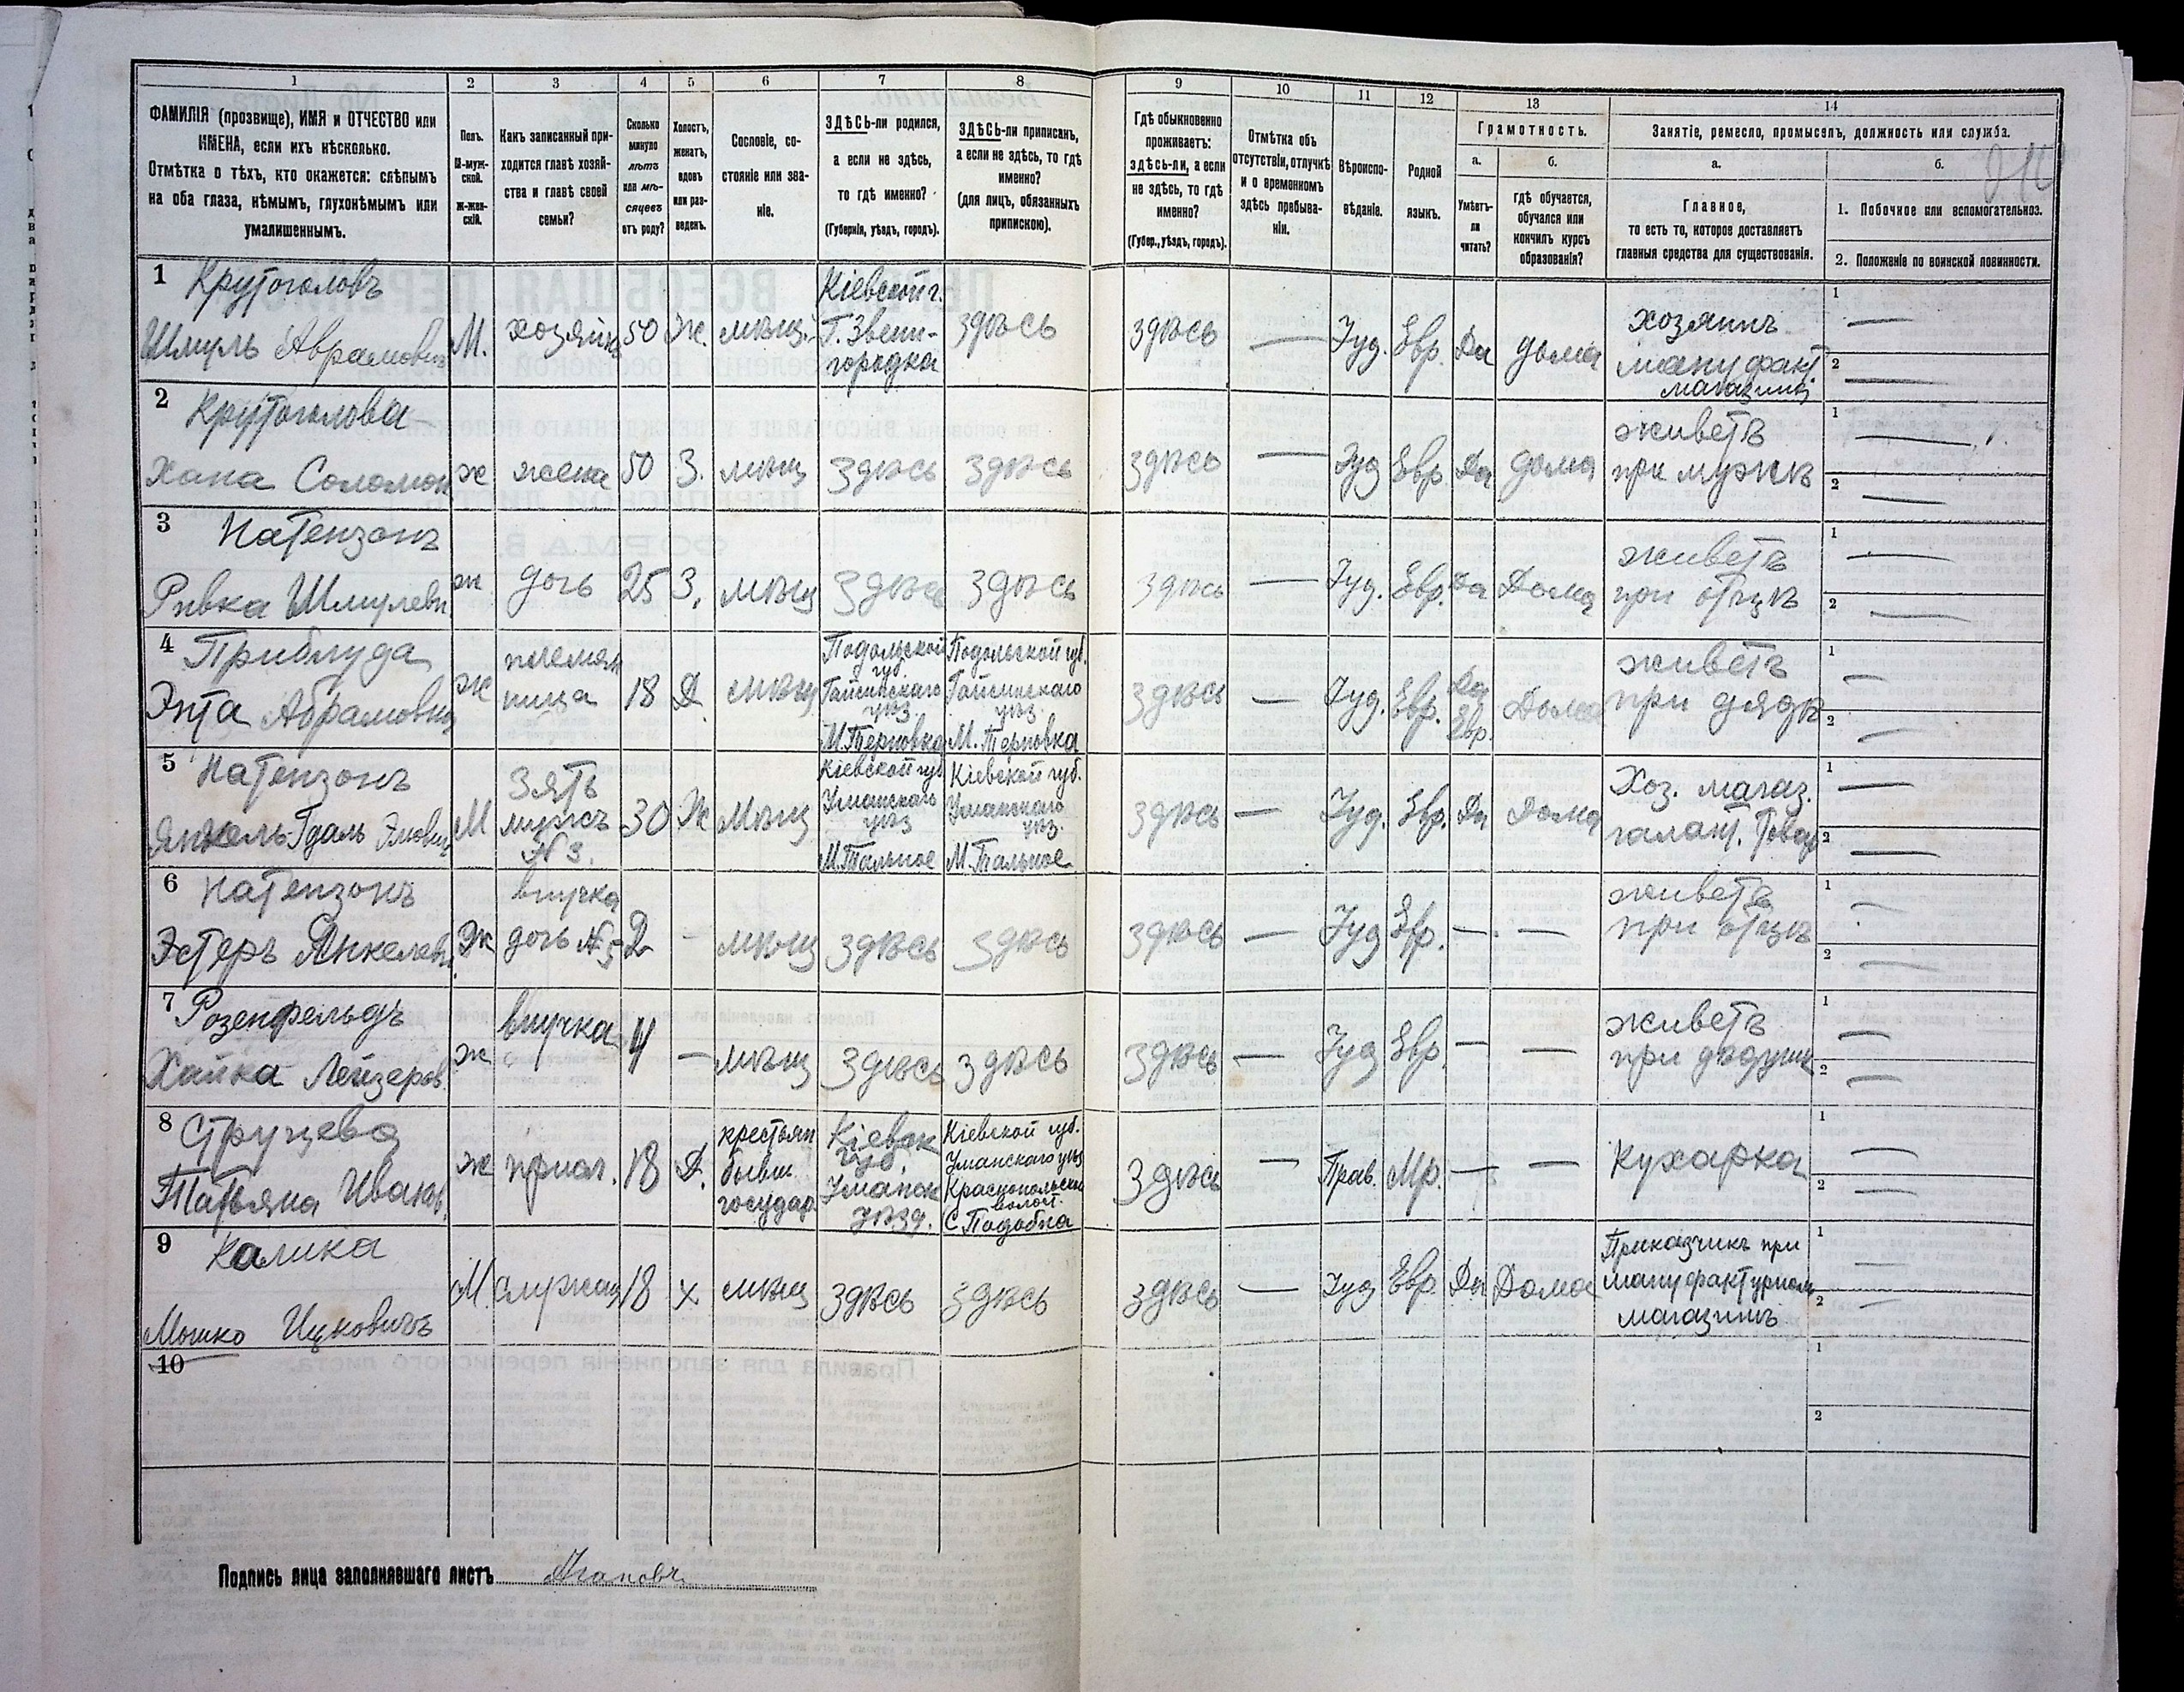 1 2 3 4 5 6 7 8 9 10 11 12 13 14
ФАМИЛІЯ (прозвище), ИМЯ и ОТЧЕСТВО или
ИМЕНА, если ихъ нѣсколько.
Отмѣтка о тѣхъ, кто окажется: слѣпымъ
на оба глаза, нѣмымъ, глухонѣмымъ или
умалишеннымъ.
Полъ.
М-муж-
ской.
ж-жен-
скій.
Какъ записанный при-
ходится главѣ хозяй-
ства и главѣ своей
семьи?
Сколько
минуло
лѣтъ
или мѣ-
сяцевъ
отъ роду?
Холостъ,
женатъ,
вдовъ
или раз-
веденъ.
Сословіе, со-
стояніе или зва-
ніе.
ЗДѢСЬ-ли родился,
а если не здѣсь,
то гдѣ именно?
(Губернія, уѣздъ, городъ).
ЗДѢСЬ-ли приписанъ,
а если не здѣсь, то гдѣ
именно?
(для лицъ, обязанныхъ
припискою).
Гдѣ обыкновенно
проживаетъ:
здѣсь-ли, а если
не здѣсь, то гдѣ
именно?
(Губер., уѣздъ, городъ).
Отмѣтка объ
отсутствіи, отлучкѣ
и о временномъ
здѣсь пребыва-
ніи.
Вѣроиспо-
вѣданіе.
Родной
языкъ.
Грамотность.
а.
Умѣетъ-
ли
читать?
б.
гдѣ обучается,
обучался или
кончилъ курсъ
образованія?
Занятіе, ремесло, промыселъ, должность или служба.
а.
Главное,
то есть то, которое доставляетъ
главныя средства для существованія.
б.
1. Побочное или вспомогательное.
2. Положеніе по воинской повинности.
1 Крутоголовъ
Шмуль Аврамовичъ
М.
хозяинъ
50
Ж.
мѣщ.
Кіевской г.
Г. Звени-
городка
здѣсь
здѣсь
—
Іуд.
Евр.
Да
дома
хозяинъ
мануфакт
магазина
1 —
2 —
2 Крутоголова
Хана Соломон
ж
жена
50
З.
мѣщ
Здѣсь
Здѣсь
здѣсь
—
Іуд
Евр
Да
дома
живетъ
при мужѣ
1 —
2 —
3 Натензонъ
Ривка Шмулевн
ж
дочь
25
З.
мѣщ
Здѣсь
здѣсь
здѣсь
—
Іуд.
Евр.
Да
Дома
живетъ
при отцѣ
1 —
2 —
4 Приблуда
Энта Абрамовна
ж
племян
ница
18
Д.
мѣщ
Подольской
губ.
Гайсинскаго
уѣз
М. Терновка
Подольской губ.
Гайсинскаго
уѣз.
М. Терновка
здѣсь
—
Іуд.
Евр.
Да
Евр.
Дома
живетъ
при дядѣ
1 —
2 —
5 Натензонъ
Янкель-Гдаль Эновичъ
М
Зять
мужъ
№ 3.
30
Ж
Мѣщ
Кіевской губ
Уманскаго
уѣз
М. Тальное
Кіевской губ.
Уманскаго
уѣз.
М. Тальное
здѣсь
—
Іуд.
Евр.
Да
Дома
Хоз. магаз.
галант. товар
1 —
2 —
6 Натензонъ
Эстеръ Янкелевн.
Ж
внучка
дочь № 5
2
-
мѣщ
здѣсь
здѣсь
здѣсь
—
Іуд
Евр.
—
—
живетъ
при отцѣ
1 —
2 —
7 Розенфельдъ
Хайка Лейзеров.
ж
внучка
4
—
мѣщ
Здѣсь
здѣсь
здѣсь
—
Іуд
Евр.
—
—
живетъ
при дѣдушк
1 —
2 —
8 Струцева
Татьяна Иванов.
ж
присл.
18
Д.
крестьян
бывш
государ.
Кіевск
губ.
Уманск
уѣзд.
Кіевской губ.
Уманскаго уѣз
Краснопольской
волост.
С. Подобна
здѣсь
—
Прав.
Мр.
—
—
Кухарка
1 —
2 —
9 Калика
Мошко Ицковичъ
М.
служащ
18
х
мѣщ
здѣсь
здѣсь
здѣсь
—
Іуд
Евр.
Да
Дома
Приказчикъ при
мануфактурном
магазинѣ
1 —
2 —
10
1
2
Подпись лица заполнявшаго листъ